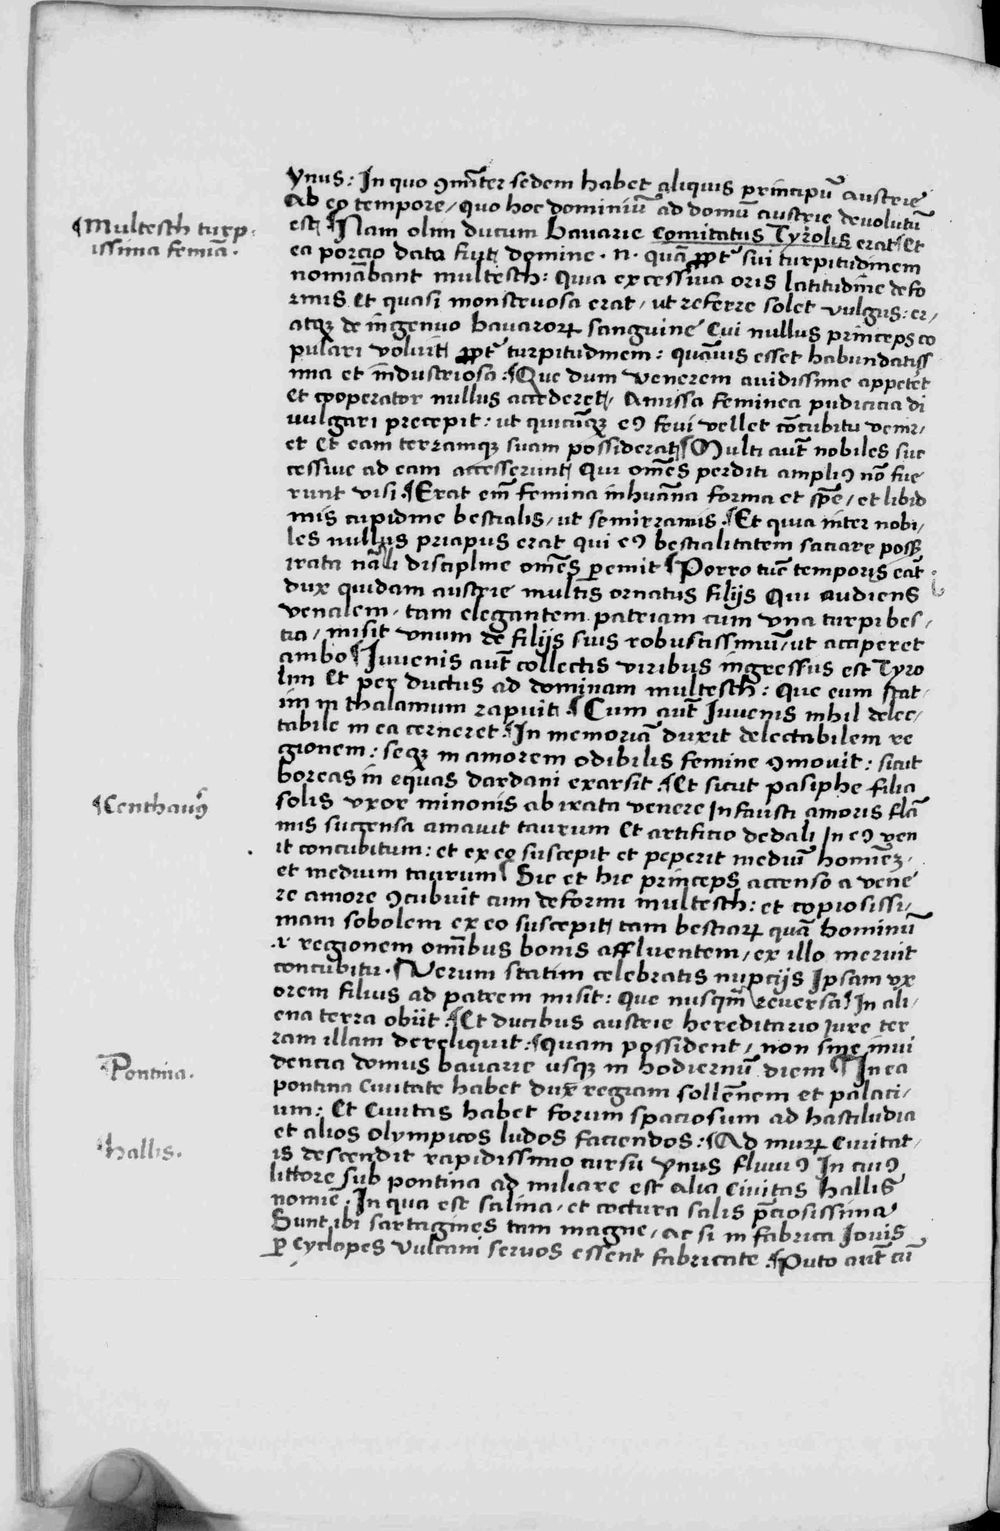 ynus: In quo ꝯmr̃ter sedem habet aliquis principũ austrie
Ab eo tempore / quo hoc dominiũ ad domũ austrie devolutũ
¶Multesch turp-
issima femĩa.
est ¶Nam olim ducum bavarie comitatus Tyrolis erat Et
ea porcio data fuit domine . n . quã ꝓpt᷑ sui turpitudinem
nomĩabant multesch: Quia excessiva oris latitudine defo
rmis Et quasi monstruosa erat / ut referre solet vulgus: er/
atqꝫ de ingenuo bavaroꝝ sanguine Cui nullus princeps co
pulari voluit ꝓpt᷑ turpitudinem: quãvis esset habundatiss
ima et industriosa: ¶Que dum venerem avidissime appetet
et cooperator nullus accederet / Amissa feminea pudicicia di
vulgari precepit: ut quicũqꝫ eꝰ frui vellet cõcubitu venir/
et Et eam terramqꝫ suam possiderat ¶Multi aut̃ nobiles suc
cessive ad eam accesserunt Qui om̃es perditi ampliꝰ nõ fue
runt visi ¶Erat em̃ femina inhuãna forma et sp̃e / et libid
inis cupidine bestialis / ut semirramis ¶Et quia inter nobi/
les nullus priapus erat qui eꝰ bestialitatem saciare poss̃
irata nãli discipline om̃es ꝑemit ¶Porro tũc temporis erat
dux quidam austrie multis ornatus filijs Qui audiens
venalem . tam elegantem patriam cum una turpi bes/
tia / misit unum de filijs suis robustissimũ / ut acciperet
ambo ¶Iuvenis aut̃ collectis viribus ingressus est Tyro
lim Et per ductus ad dominam multesch: Que eum stat/
im in thalamum rapuit ¶Cum aut̃ Iuvenis nihil delec/
tabile in ea cerneret ¶In memoriã duxit delectabilem re
gionem: seqꝫ in amorem odibilis femine ꝯmovit: sicut
boreas in equas dardani exarsit ¶Et sicut pasiphe filia
¶Centhaurꝰ
solis uxor minonis ab irata venere Infausti amoris flã
mis succensa amavit taurum Et artificio dedali In eꝰ ven
it concubitum: et ex eo suscepit et peperit mediũ hominẽ.
et medium taurum Sic et hic princeps accenso a vene
re amore ꝯcubuit cum deformi multesch: et copiosissi/
mam sobolem ex eo suscepit tam bestiaꝝ quã hominũ
. Et regionem omĩbus bonis affluentem / ex illo meruit
concubitu . ¶Verum statim celebratis nupcijs Ipsam ux
orem filius ad patrem misit: Que nusqm̃ reversa In ali/
ena terra obiit ¶Et ducibus austrie hereditario jure ter
ram illam dereliquit: ¶quam possident / non sine invi
dencia domus bavarie usqꝫ in hodiernũ diem ¶In ea
Pontina.
pontina Civitate habet dux regiam sollẽnem et palaci/
um: Et Civitas habet forum spaciosum ad hastiludia
et alios Olympicos ludos faciendos: ¶Ad muꝝ Civitat/
¶hallis.
is descendit rapidissimo cursu ynus fluviꝰ In cuiꝰ
littore sub pontina ad miliare est alia Civitas hallis
nomĩe . In qua est salina / et coctura salis p̃ciosissima
Sunt ibi sartagines tam magne / ac si in fabrica Jovis
ꝑ Cyclopes Vulcani servos essent fabricate ¶Puto aut̃ cũ